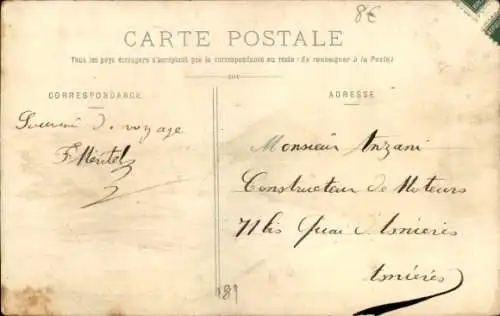 8€
CARTE POSTALE
Tous les pays étrangers n'acceptent pas la correspondance au recto (Se renseigner à la Poste)
CORRESPONDANCE
ADRESSE
Souvenir de voyage
Monsieur Anzani
Constructeur de Moteurs
71 bis Quai d'Asnières
Asnières
189